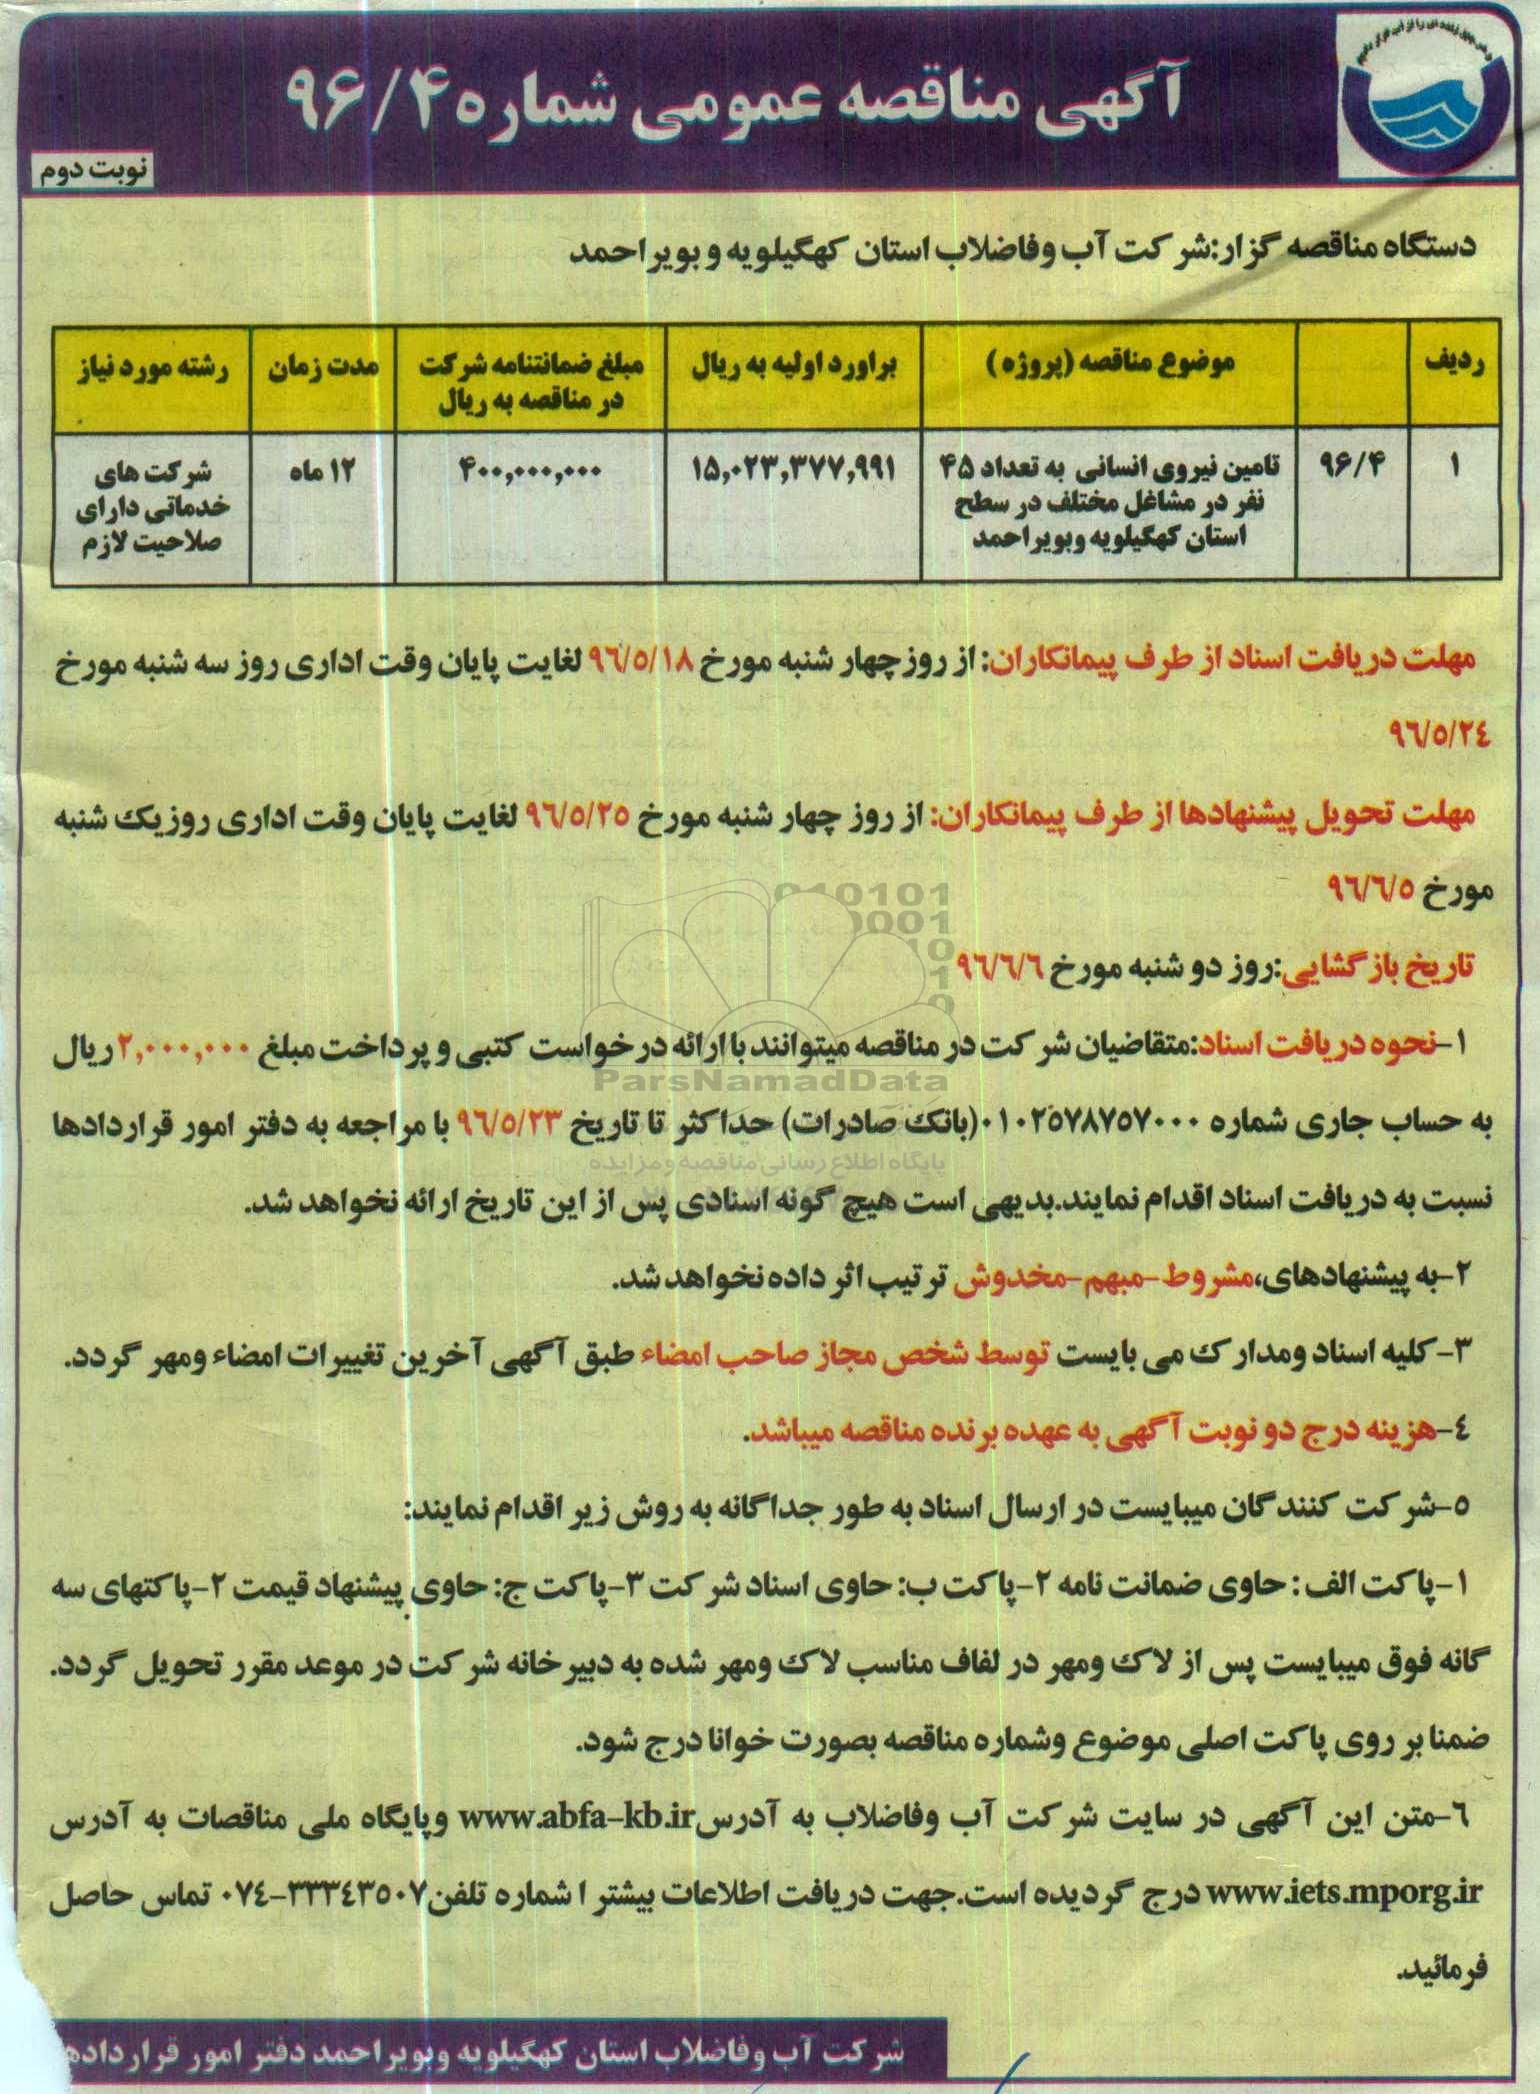 آگهی مناقصه عمومی شماره ۹۶/۴
نوبت دوم
دستگاه مناقصه گزار:شرکت آب وفاضلاب استان کهگیلویه و بویراحمد
ردیف
موضوع مناقصه (پروژه)
براورد اولیه به ریال
مبلغ ضمانتنامه شرکت
در مناقصه به ریال
مدت زمان
رشته مورد نیاز
۱
۹۶/۴
تامین نیروی انسانی به تعداد ۴۵
نفر در مشاغل مختلف در سطح
استان کهگیلویه وبویراحمد
۱۵,۰۲۳,۳۷۷,۹۹۱
۴۰۰,۰۰۰,۰۰۰
۱۲ ماه
شرکت های
خدماتی دارای
صلاحیت لازم
مهلت دریافت اسناد از طرف پیمانکاران: از روز چهار شنبه مورخ ۹٦/٥/۱۸ لغایت پایان وقت اداری روز سه شنبه مورخ
۹٦/٥/۲٤
مهلت تحویل پیشنهادها از طرف پیمانکاران: از روز چهار شنبه مورخ ۹٦/٥/۲٥ لغایت پایان وقت اداری روزیک شنبه
مورخ ۹٦/٦/٥
تاریخ بازگشایی:روز دو شنبه مورخ ۹٦/٦/٦
۱-نحوه دریافت اسناد:متقاضیان شرکت در مناقصه میتوانند با ارائه درخواست کتبی و پرداخت مبلغ ۲,۰۰۰,۰۰۰ریال
به حساب جاری شماره ۰۱۰۲٥۷۸۷٥۷۰۰۰(بانک صادرات) حداکثر تا تاریخ ۹٦/٥/۲۳ با مراجعه به دفتر امور قراردادها
نسبت به دریافت اسناد اقدام نمایند.بدیهی است هیچ گونه اسنادی پس از این تاریخ ارائه نخواهد شد.
۲-به پیشنهادهای،مشروط-مبهم-مخدوش ترتیب اثر داده نخواهد شد.
۳-کلیه اسناد ومدارک می بایست توسط شخص مجاز صاحب امضاء طبق آگهی آخرین تغییرات امضاء ومهر گردد.
٤-هزینه درج دو نوبت آگهی به عهده برنده مناقصه میباشد.
٥-شرکت کنندگان میبایست در ارسال اسناد به طور جداگانه به روش زیر اقدام نمایند:
۱-پاکت الف: حاوی ضمانت نامه ۲-پاکت ب: حاوی اسناد شرکت ۳-پاکت ج: حاوی پیشنهاد قیمت ۲-پاکتهای سه
گانه فوق میبایست پس از لاک ومهر در لفاف مناسب لاک ومهر شده به دبیرخانه شرکت در موعد مقرر تحویل گردد.
ضمنا بر روی پاکت اصلی موضوع وشماره مناقصه بصورت خوانا درج شود.
٦-متن این آگهی در سایت شرکت آب وفاضلاب به آدرس www.abfa-kb.ir وپایگاه ملی مناقصات به آدرس
www.iets.mporg.ir درج گردیده است.جهت دریافت اطلاعات بیشتر ا شماره تلفن ۰۷٤-۳۳۳٤۳٥۰۷ تماس حاصل
فرمائید.
شرکت آب وفاضلاب استان کهگیلویه وبویراحمد دفتر امور قراردادها
ParsNamadData
پایگاه اطلاع رسانی مناقصه و مزایده